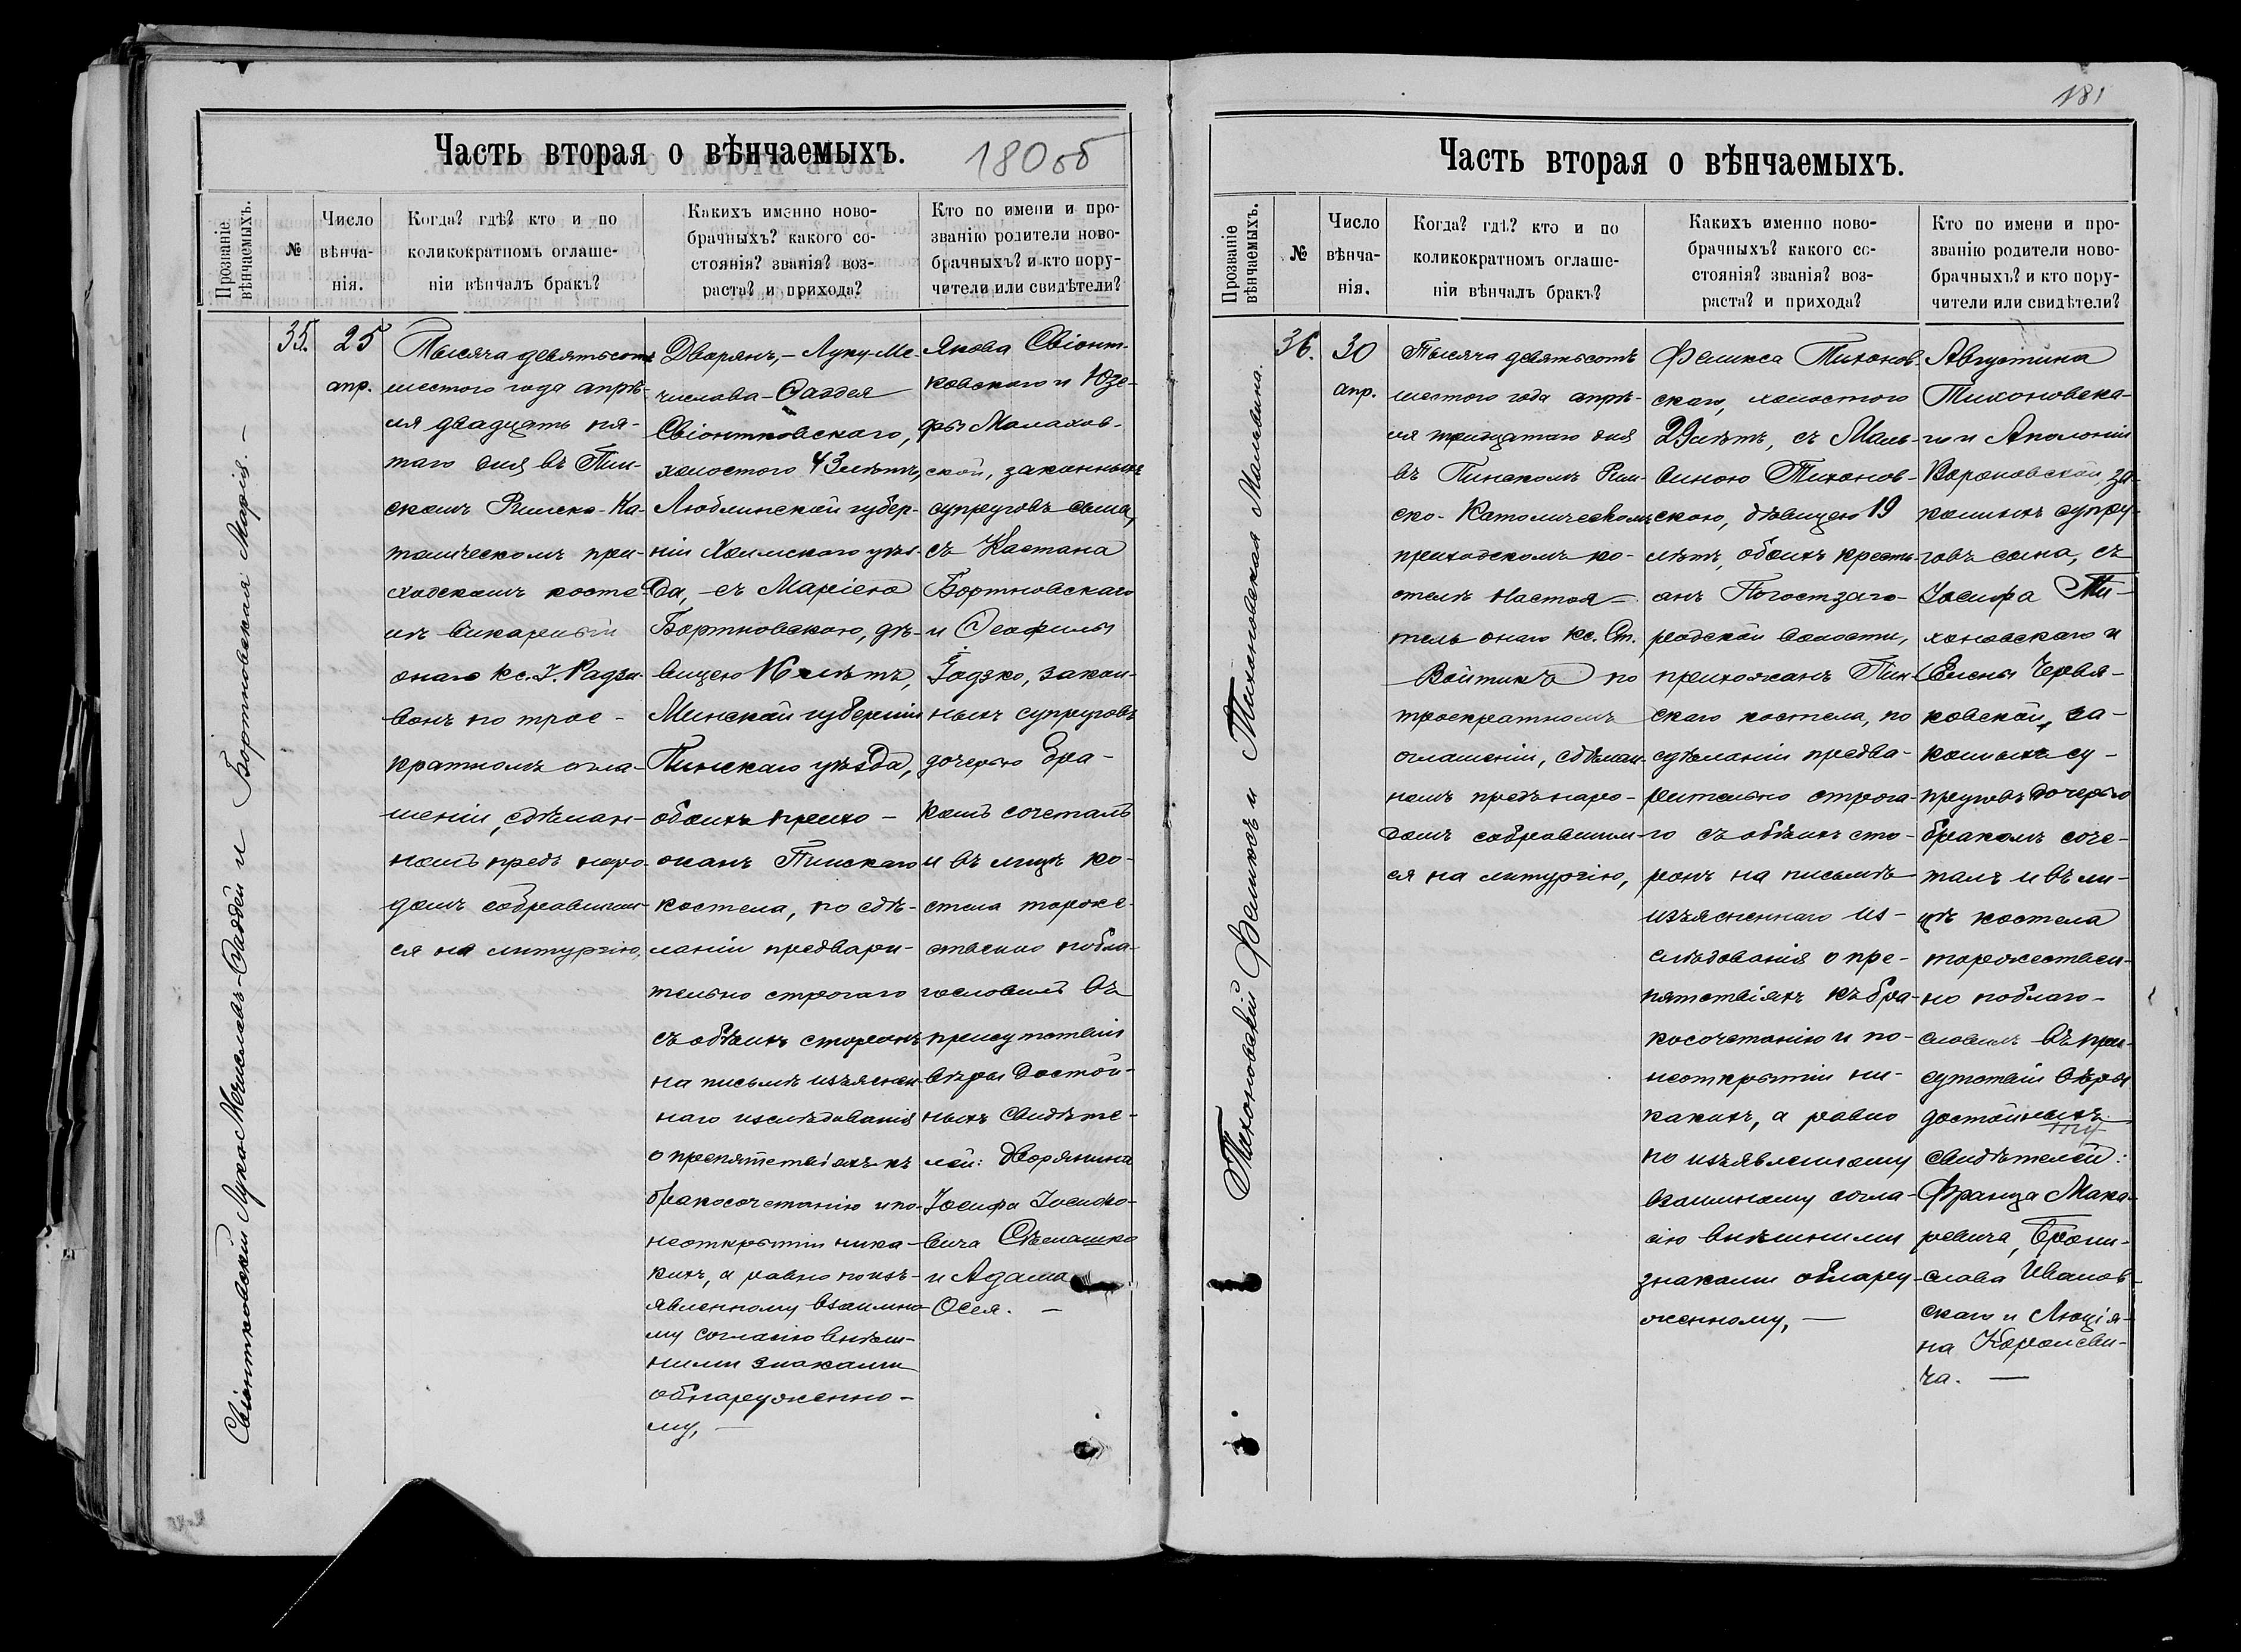 Часть вторая о вѣнчаемыхъ.
180об
Прозваніе вѣнчаемыхъ.
№
Число вѣнча-нія.
Когда? гдѣ? кто и по
коликократномъ оглаше-
ніи вѣнчалъ бракъ?
Какихъ именно ново-
брачныхъ? какого со-
стоянія? званія? воз-
раста? и прихода?
Кто по имени и про-
званію родители ново-
брачныхъ? и кто пору-
чители или свидѣтели?
Свіонтковскій Лука-Мечиславъ-Фаддей и Бортновская Марія. —
35.
25
апр.
Тысяча девятьсотъ
шестого года апрѣ-
ля двадцать пя-
таго дня въ Пин-
скомъ Римско-Ка-
толическомъ при-
ходскомъ косте-
лѣ викарный
онаго кс. І. Радзи-
вонъ по трое-
кратномъ огла-
шеніи, сдѣлан-
номъ предъ наро-
домъ собравшим-
ся на литургію,
Дворянъ, — Луку-Ме-
числава-Фаддея
Свіонтковскаго,
холостого 43 лѣтъ,
Люблинской губер-
ніи Холмского уѣз-
да, — съ Маріею
Бортновскою, дѣ-
вицею 16 лѣтъ,
Минской губерніи
Пинскаго уѣзда,
обоихъ прихо-
жанъ Пинскаго
костела, по сдѣ-
ланіи предвари-
тельно строгаго
съ обѣихъ сторонъ
на письмѣ изъяснен-
наго изслѣдованія
о препятствіяхъ къ
бракосочетанію и по-
неоткрытіи ника-
кихъ, а равно по изъ-
явленному взаимно-
му согласію внѣш-
ними знаками
обнаруженно-
му, —
Якова Свіонт-
ковскаго и Юзе-
фы Малахов-
ской, законныхъ
супруговъ сына,
съ Каетана
Бортновскаго
и Теофили
Годзко, закон-
ныхъ супруговъ
дочерью бра-
комъ сочеталъ
и въ лицѣ ко-
стела торже-
ственно побла-
гословилъ въ
присутствіи
вѣры достой-
ныхъ свидѣте-
лей: Дворянина
Іосифа Іосифо-
вича Сѣмашко
и Адама
Осея. —
181
Часть вторая о вѣнчаемыхъ.
Прозваніе вѣнчаемыхъ.
№
Число вѣнча-нія.
Когда? гдѣ? кто и по
коликократномъ оглаше-
ніи вѣнчалъ бракъ?
Какихъ именно ново-
брачныхъ? какого со-
стоянія? званія? воз-
раста? и прихода?
Кто по имени и про-
званію родители ново-
брачныхъ? и кто пору-
чители или свидѣтели?
Тихоновскій Феликсъ и Тихоновская Мальвина.
36.
30
апр.
Тысяча девятьсотъ
шестого года апрѣ-
ля тридцатаго дня
въ Пинскомъ Рим-
ско-Католическомъ
приходскомъ ко-
стелѣ Настоя-
тель онаго кс. Ст.
Войтикъ по
троекратномъ
оглашеніи, сдѣлан-
номъ предъ наро-
домъ собравшим-
ся на литургію,
Феликса Тихонов-
скаго, холостого
29 лѣтъ, съ Маль-
виною Тихонов-
скою, дѣвицею 19
лѣтъ, обоихъ кресть-
анъ Погостзаго-
родской волости,
прихожанъ Пин-
скаго костела, по
сдѣланіи предва-
рительно строга-
го съ обѣихъ сто-
ронъ на письмѣ
изъясненнаго из-
слѣдованія о пре-
пятствіяхъ къ бра-
косочетанію и по-
неоткрытіи ни-
какихъ, а равно
по изъявленному
взаимному согла-
сію внѣшними
знаками обнару-
женному, —
Августина
Тихоновска-
го и Аполоніи
Вороновской, за-
конныхъ супру-
говъ сына, съ
Іосифа Ти-
хоновскаго и
Елены Червя-
ковской, за-
конныхъ су-
пруговъ дочерью
бракомъ соче-
талъ и въ ли-
цѣ костела
торжествен-
но поблаго-
словилъ въ при-
сутствіи вѣры
достойныхъ
свидѣтелей:
Франца Мака-
ревича, Брони-
слава Иванов-
скаго и Люція-
на Королеви-
ча. —